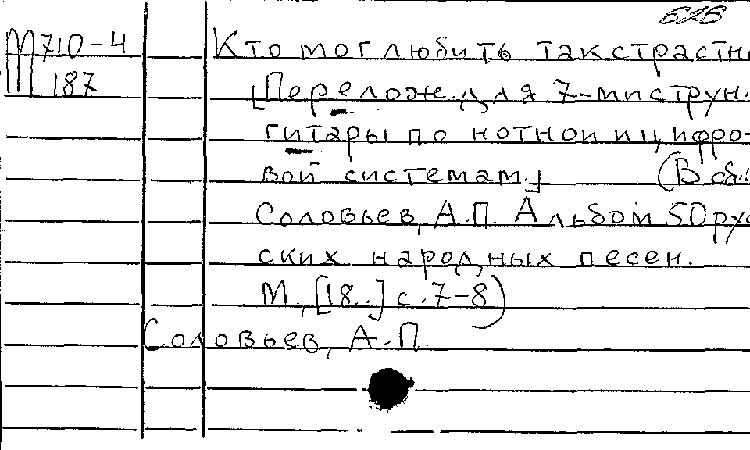 626
М 710-4 Кто мог любить так страстн
187 [Перелож. для 7-миструн.
гитары по нотной и цифро-
вой системам] (В об.
Соловьев, А.П. Альбом 50 рус
ских народных песен.
М., [18..] с. 7-8)
Соловьев, А.П.